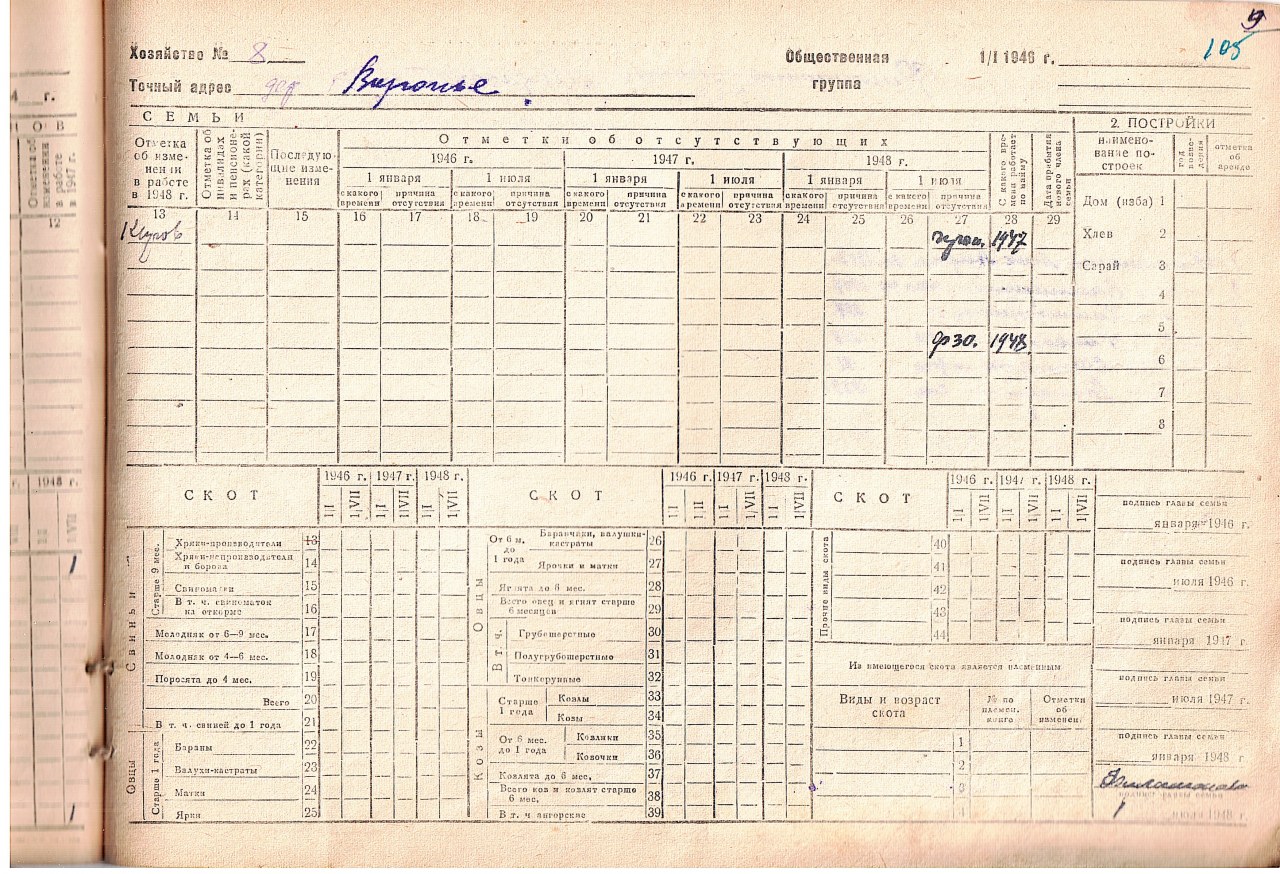 9
105
Хозяйство № 8
Общественная группа
1/I 1946 г.
Точный адрес дер Воронье
4 г.
СЕМЬИ
2. ПОСТРОЙКИ
Отметка об изменении в работе в 1947 г.
12
Отметка об изменении в работе в 1948 г.
Отметка об инвалидах и пенсионерах (какой категории)
Последующие изменения
Отметки об отсутствующих
1946 г. 1947 г. 1948 г.
1 января 1 июля 1 января 1 июля 1 января 1 июля
с какого времени причина отсутствия с какого времени причина отсутствия с какого времени причина отсутствия с какого времени причина отсутствия с какого времени причина отсутствия с какого времени причина отсутствия
С какого времени работает по найму
Дата прибытия нового члена семьи
наименование построек
год возведения
отметка об аренде
13 14 15 16 17 18 19 20 21 22 23 24 25 26 27 28 29
1947
ФЗО. 1948
Дом (изба) 1
Хлев 2
Сарай 3
4
5
6
7
8
1948 г.
1/I 1/VII
1
1
СКОТ
1946 г. 1947 г. 1948 г.
1/I 1/VII 1/I 1/VII 1/I 1/VII
Свиньи
Старше 9 мес.
Хряки-производители 13
Хряки-непроизводители и борова 14
Свиноматки 15
В т. ч. свиноматок на откорме 16
Молодняк от 6—9 мес. 17
Молодняк от 4—6 мес. 18
Поросята до 4 мес. 19
Всего 20
В т. ч. свиней до 1 года 21
Овцы
Старше 1 года
Бараны 22
Валухи-кастраты 23
Матки 24
Ярки 25
СКОТ
1946 г. 1947 г. 1948 г.
1/I 1/II 1/I 1/VII 1/I 1/VII
Овцы
От 6 м. до 1 года
Баранчики, валушки-кастраты 26
Ярочки и матки 27
Ягнята до 6 мес. 28
Всего овец и ягнят старше 6 месяцев 29
В т. ч.
Грубошерстные 30
Полугрубошерстные 31
Тонкорунные 32
Козы
Старше 1 года
Козлы 33
Козы 34
От 6 мес. до 1 года
Козлики 35
Козочки 36
Козлята до 6 мес. 37
Всего коз и козлят старше 6 мес. 38
В т. ч. ангорские 39
СКОТ
1946 г. 1947 г. 1948 г.
1/I 1/VII 1/I 1/VII 1/I 1/VII
Прочие виды скота
40
41
42
43
44
Из имеющегося скота является племенным
Виды и возраст скота
№ по племен. книге
Отметки об изменен.
1
2
3
4
подпись главы семьи
января 1946 г.
подпись главы семьи
июля 1946 г.
подпись главы семьи
января 1947 г
подпись главы семьи
июля 1947 г.
подпись главы семьи
января 1948 г
подпись главы семьи
июля 1948 г.